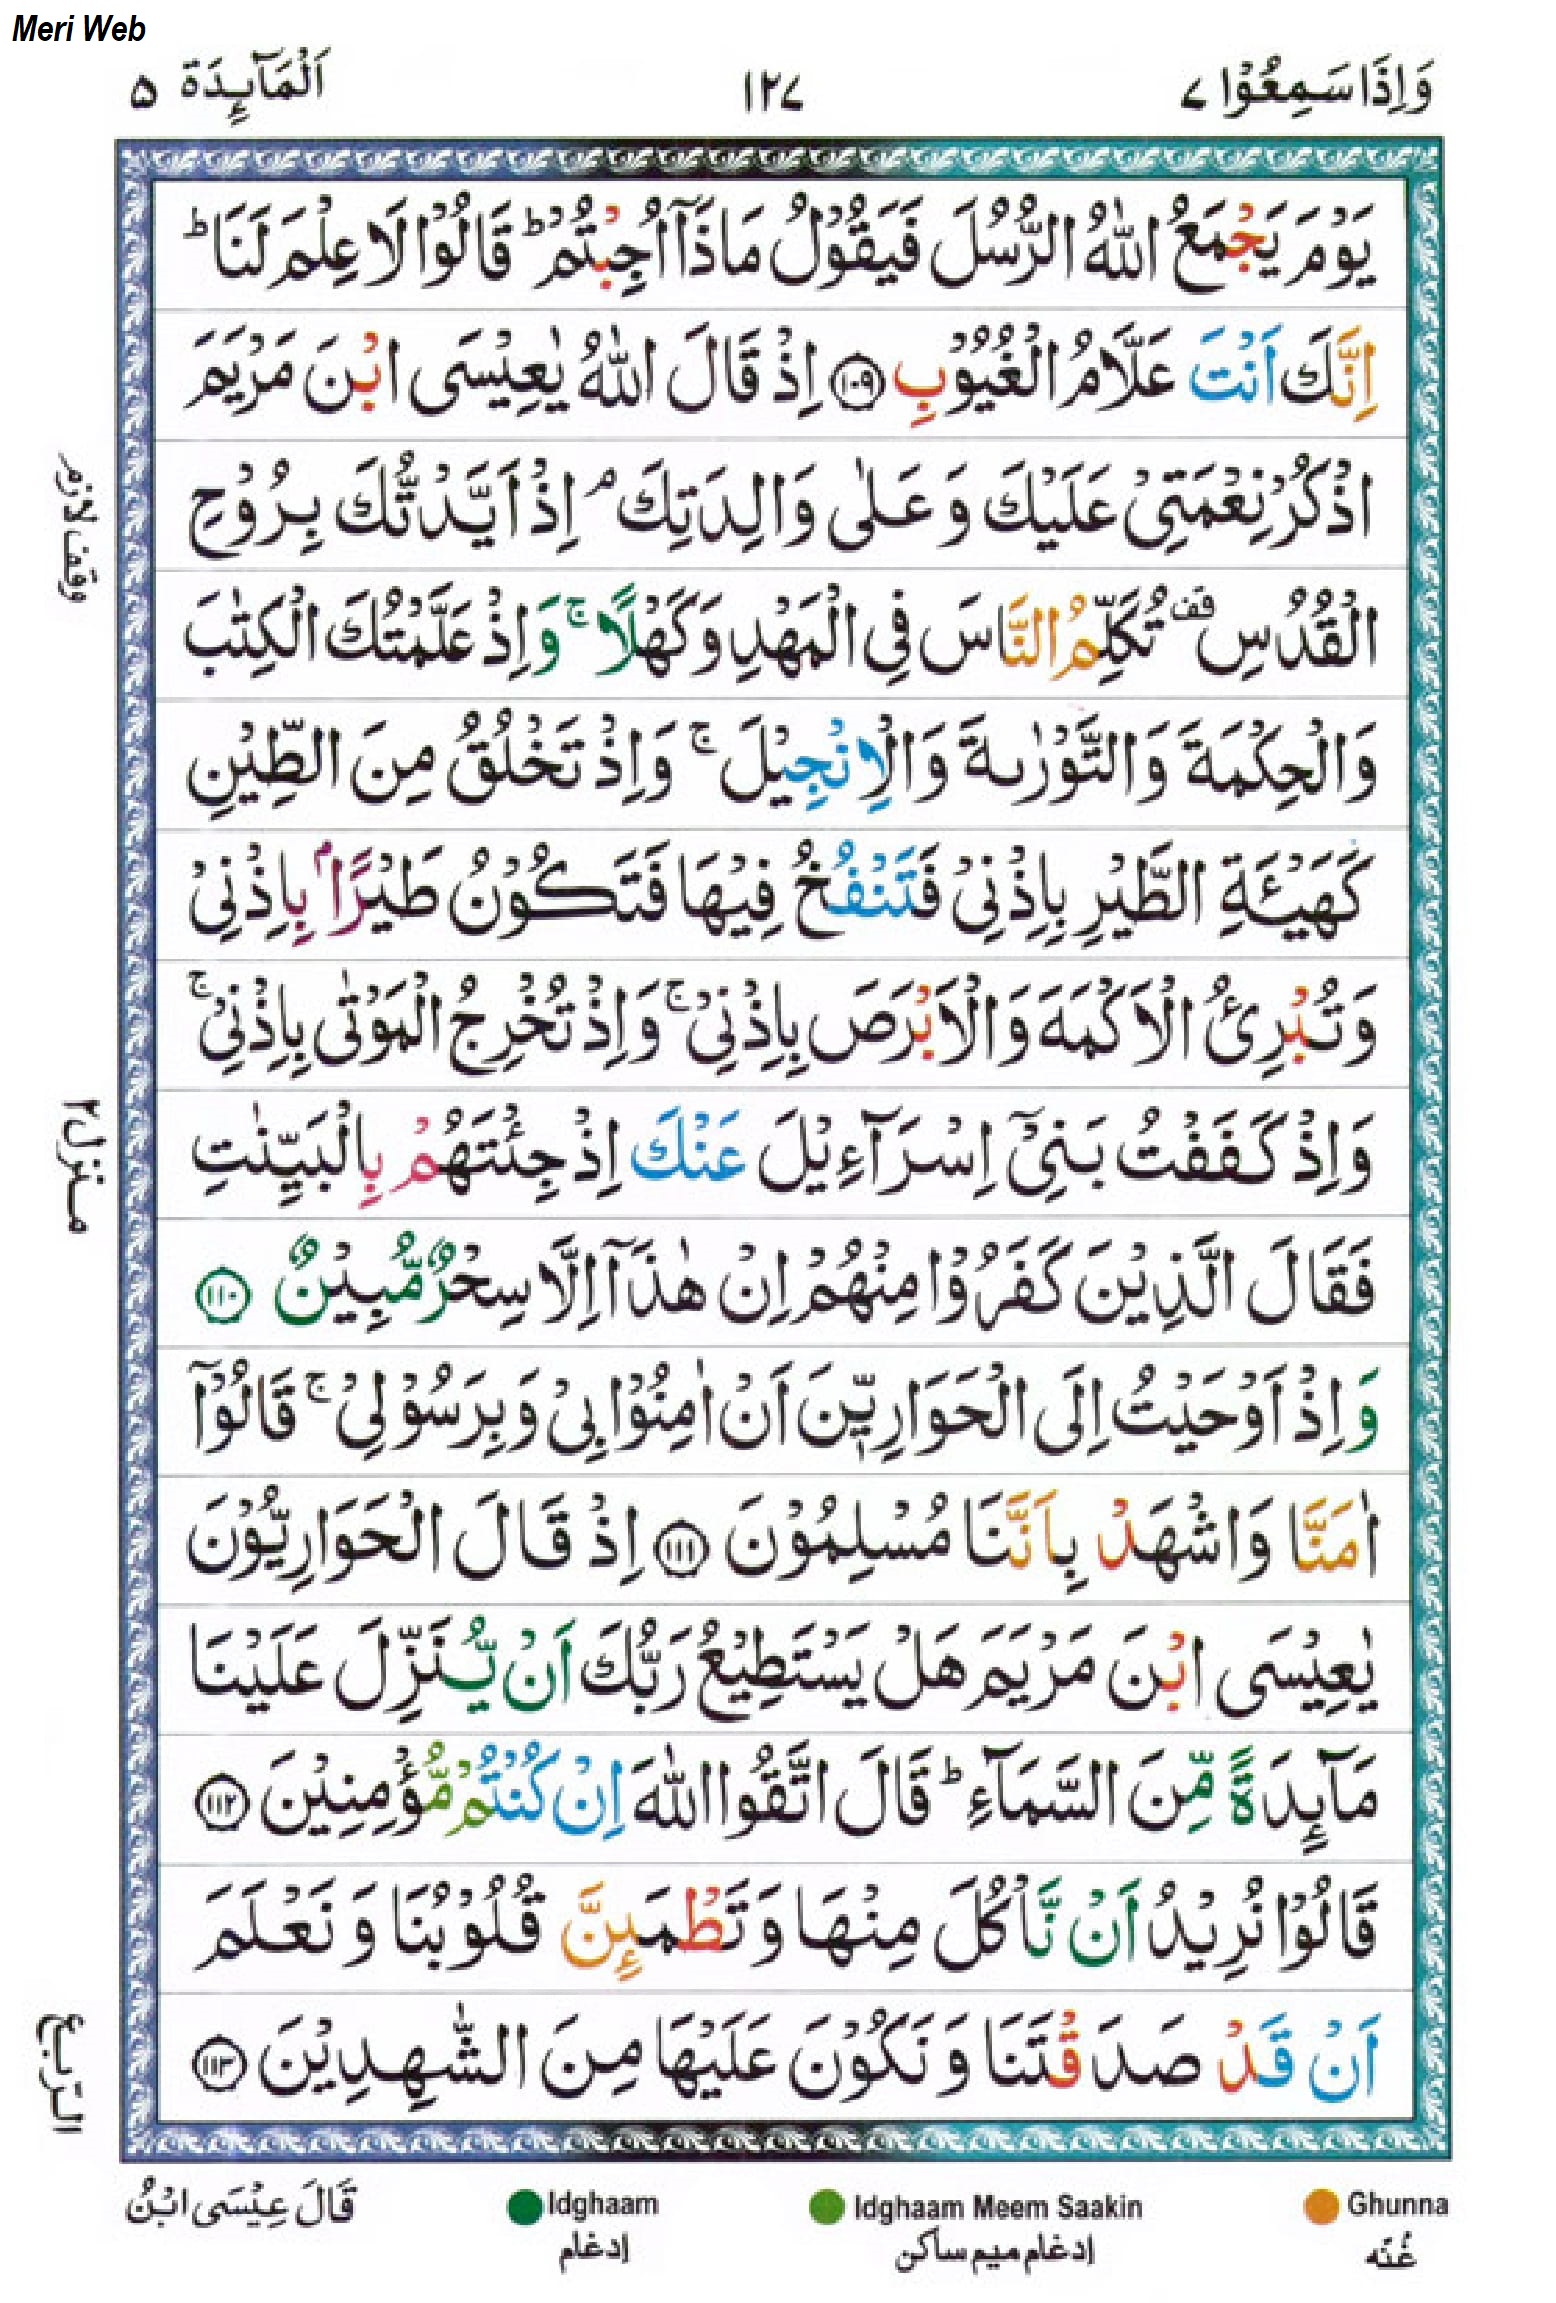 Meri Web
وَاِذَا سَمِعُوْا ٧
١٢٧
اَلْمَآىِٕدَة ۵
يَوْمَ يَجْمَعُ اللّٰهُ الرُّسُلَ فَيَقُوْلُ مَاذَاۤ اُجِبْتُمْ ؕ قَالُوْا لَا عِلْمَ لَنَا ؕ
اِنَّكَ اَنْتَ عَلَّامُ الْغُيُوْبِ ۝١٠٩ اِذْ قَالَ اللّٰهُ يٰعِيْسَى ابْنَ مَرْيَمَ
اذْكُرْ نِعْمَتِيْ عَلَيْكَ وَ عَلٰى وَالِدَتِكَ ۘ اِذْ اَيَّدْتُّكَ بِرُوْحِ
وقف لازم
الْقُدُسِ ۫ تُكَلِّمُ النَّاسَ فِي الْمَهْدِ وَكَهْلًا ۚ وَاِذْ عَلَّمْتُكَ الْكِتٰبَ
وَالْحِكْمَةَ وَالتَّوْرٰىةَ وَالْاِنْجِيْلَ ۚ وَاِذْ تَخْلُقُ مِنَ الطِّيْنِ
كَهَيْـَٔةِ الطَّيْرِ بِاِذْنِيْ فَتَنْفُخُ فِيْهَا فَتَكُوْنُ طَيْرًاۢ بِاِذْنِيْ
وَتُبْرِئُ الْاَكْمَهَ وَالْاَبْرَصَ بِاِذْنِيْ ۚ وَاِذْ تُخْرِجُ الْمَوْتٰى بِاِذْنِيْ ۚ
وَاِذْ كَفَفْتُ بَنِيْۤ اِسْرَآءِيْلَ عَنْكَ اِذْ جِئْتَهُمْ بِالْبَيِّنٰتِ
منزل ٢
فَقَالَ الَّذِيْنَ كَفَرُوْا مِنْهُمْ اِنْ هٰذَاۤ اِلَّا سِحْرٌ مُّبِيْنٌ ۝١١٠
وَاِذْ اَوْحَيْتُ اِلَى الْحَوَارِيّٖنَ اَنْ اٰمِنُوْا بِيْ وَبِرَسُوْلِيْ ۚ قَالُوْۤا
اٰمَنَّا وَاشْهَدْ بِاَنَّنَا مُسْلِمُوْنَ ۝١١١ اِذْ قَالَ الْحَوَارِيُّوْنَ
يٰعِيْسَى ابْنَ مَرْيَمَ هَلْ يَسْتَطِيْعُ رَبُّكَ اَنْ يُّنَزِّلَ عَلَيْنَا
مَآىِٕدَةً مِّنَ السَّمَآءِ ؕ قَالَ اتَّقُوا اللّٰهَ اِنْ كُنْتُمْ مُّؤْمِنِيْنَ ۝١١٢
قَالُوْا نُرِيْدُ اَنْ نَّاْكُلَ مِنْهَا وَتَطْمَىِٕنَّ قُلُوْبُنَا وَ نَعْلَمَ
اَنْ قَدْ صَدَقْتَنَا وَ نَكُوْنَ عَلَيْهَا مِنَ الشّٰهِدِيْنَ ۝١١٣
الربع
Ghunna
غُنّه
Idghaam Meem Saakin
إدغام ميم ساكن
Idghaam
إدغام
قَالَ عِيْسَى ابْنُ